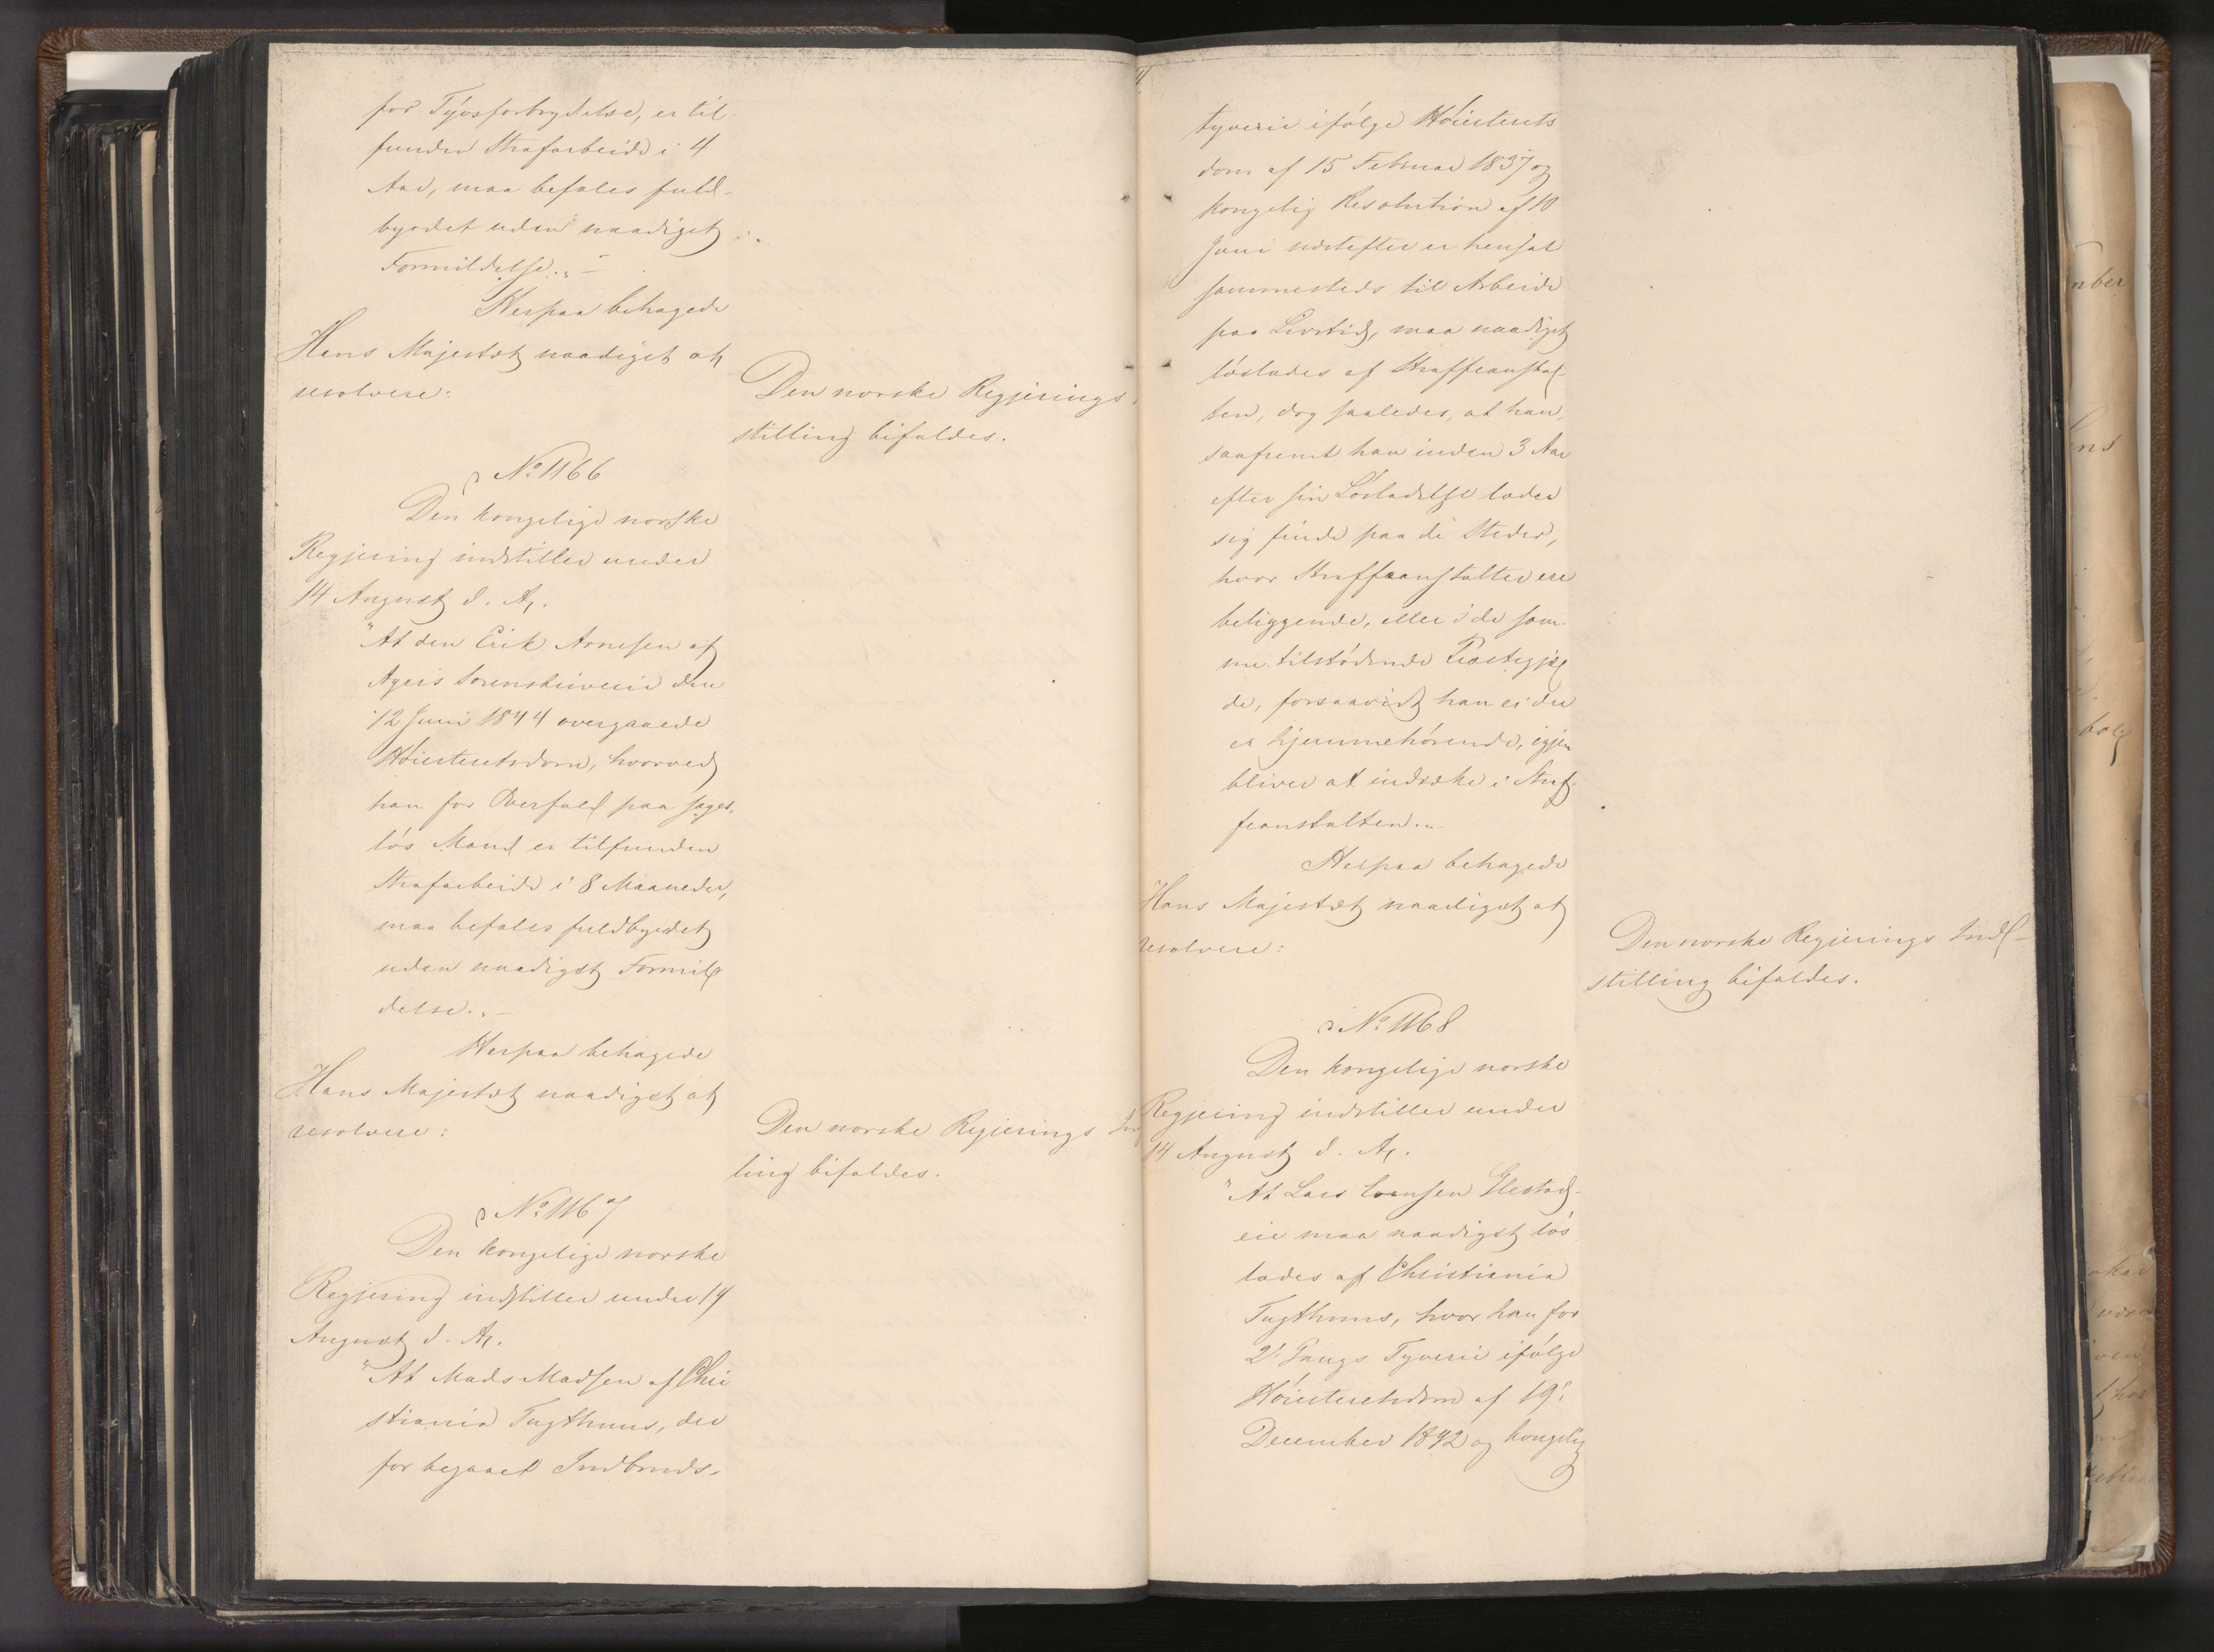 for Tyvsforbrydelse, er til
funden Strafarbeide i 4
Aar, maa befales fuld-
byrdet uden naadigst
Formildelse." —
Herpaa behagede
Hans Majestæt naadigst at
resolvere:
Den norske Regjerings
stilling bifaldes.
No 1166
Den kongelige norske
Regjering indstiller under
14 August d. A.
"At den Erik Arnesen af
Agers Sorenskriverie den
12 Juni 1844 overgaaede
Høiesteretsdom, hvorved
han for Overfald paa sages-
løs Mand er tilfunden
Strafarbeide i 8 Maaneder,
maa befales fuldbyrdet
uden naadigst Formil
delse." —
Herpaa behagede
Hans Majestæt naadigst at
resolvere:
Den norske Regjerings Ind
ling bifaldes.
No 1167
Den kongelige norske
Regjering indstiller under 14
August d. A.
"At Mads Madsen af Chri
stiania Tugthuus, der
for begaaet Indbruds-
tyverie ifølge Høiesterets
dom af 15 Februar 1837 og
kongelig Resolution af 10
Juni næstefter er hensat
sammesteds til Arbeide
paa Livstid, maa naadigst
løslades af Straffeanstal-
ten, dog saaledes, at han,
saafremt han inden 3 Aar
efter sin Løsladelse lader
sig finde paa de Steder,
hvor Straffeanstalter ere
beliggende, eller i de sam-
me tilstødende Præstegjæl
de, forsaavidt han ei der
er hjemmehørende, igjen
bliver at indsætte i Straf-
feanstalten."
Herpaa behagede
Hans Majestæt naadigst at
resolvere:
Den norske Regjerings Ind-
stilling bifaldes.
No 1168
Den kongelige norske
Regjering indstiller under
14 August d. A.
"At Lars Evensen
eie maa naadigst løs
lades af Christiania
Tugthuus, hvor han for
2. Gangs Tyverie ifølge
Høiesteretsdom af 19.
December 1842 og kongelig